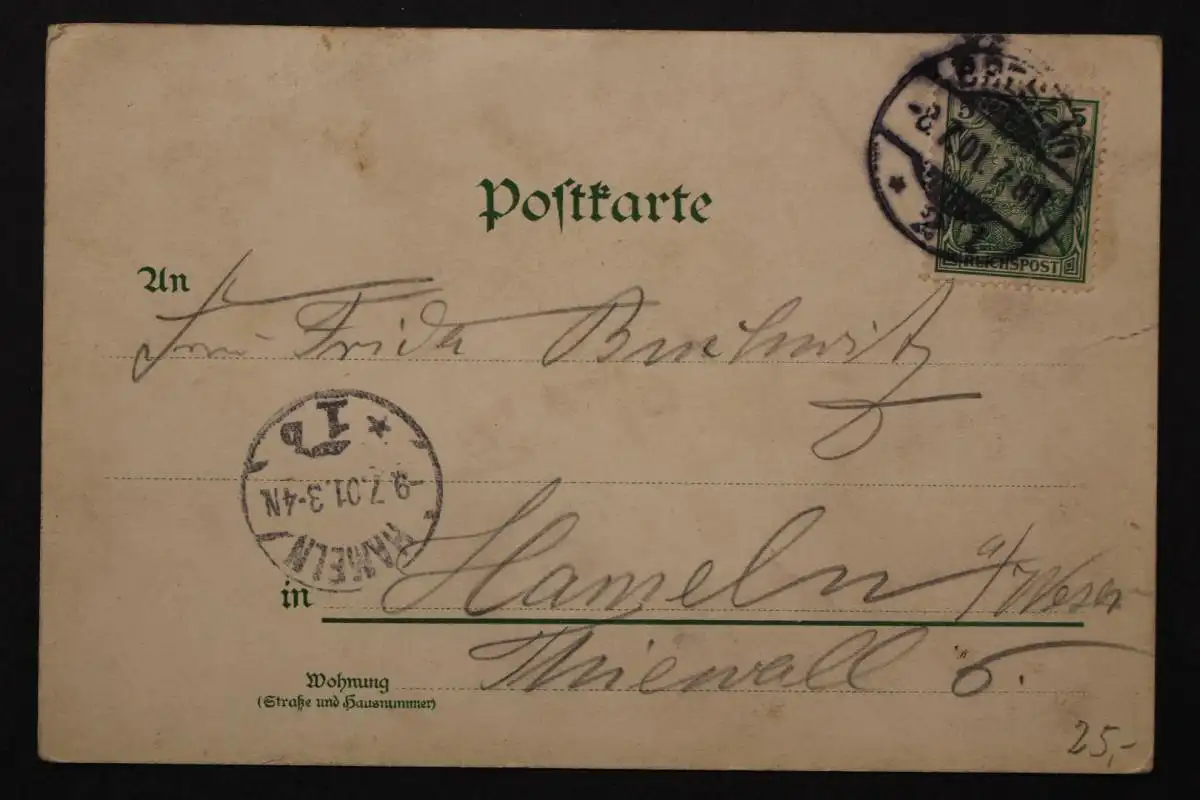 Postkarte
BRESLAU
-8.7.01.7-8N
* 2
5 5
REICHSPOST
An
Frau Frida Buchwitz
1b *
-9.7.01.3-4N
HAMELN
in Hameln a/Weser
Wohnung Thiewall 6.
(Straße und Hausnummer)
25,-